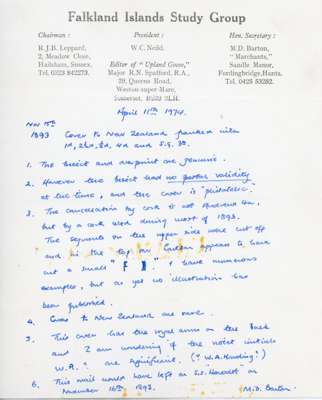 Falkland Islands Study Group
Chairman :
R.J.B. Leppard,
2, Meadow Close,
Hailsham, Sussex.
Tel. 0323 842273.
President :
W.C. Neild.
Editor of "Upland Goose,"
Major R.N. Spafford, R.A.,
29, Queens Road,
Weston-super-Mare,
Somerset,
Hon. Secretary :
M.D. Barton,
"Marchants,"
Sandle Manor,
Fordingbridge, Hants.
Tel. 0425 53282.
April 11th 1974.
Nov 5th
1893 Cover to New Zealand franked with
1d, 4d and S.G. 33.
1. The bisect and overprint are genuine.
2. However the bisect had no postal validity
at the time, and the cover is "philatelic"
3. The cancellation by cork is not
but by a cork used during most of 1893.
The segments on the upper side were cut off
and in the top one appears to have
cut a small I have numerous
examples, but as yet no illustration has
been published.
4. Covers to New Zealand are rare.
5. This cover has the royal arms on the back
and I am wondering if the
W.A. are significant. ("W.A. Harding")
6. This mail would have left on S.S. on
November 16th 1893.
M.D. Barton.